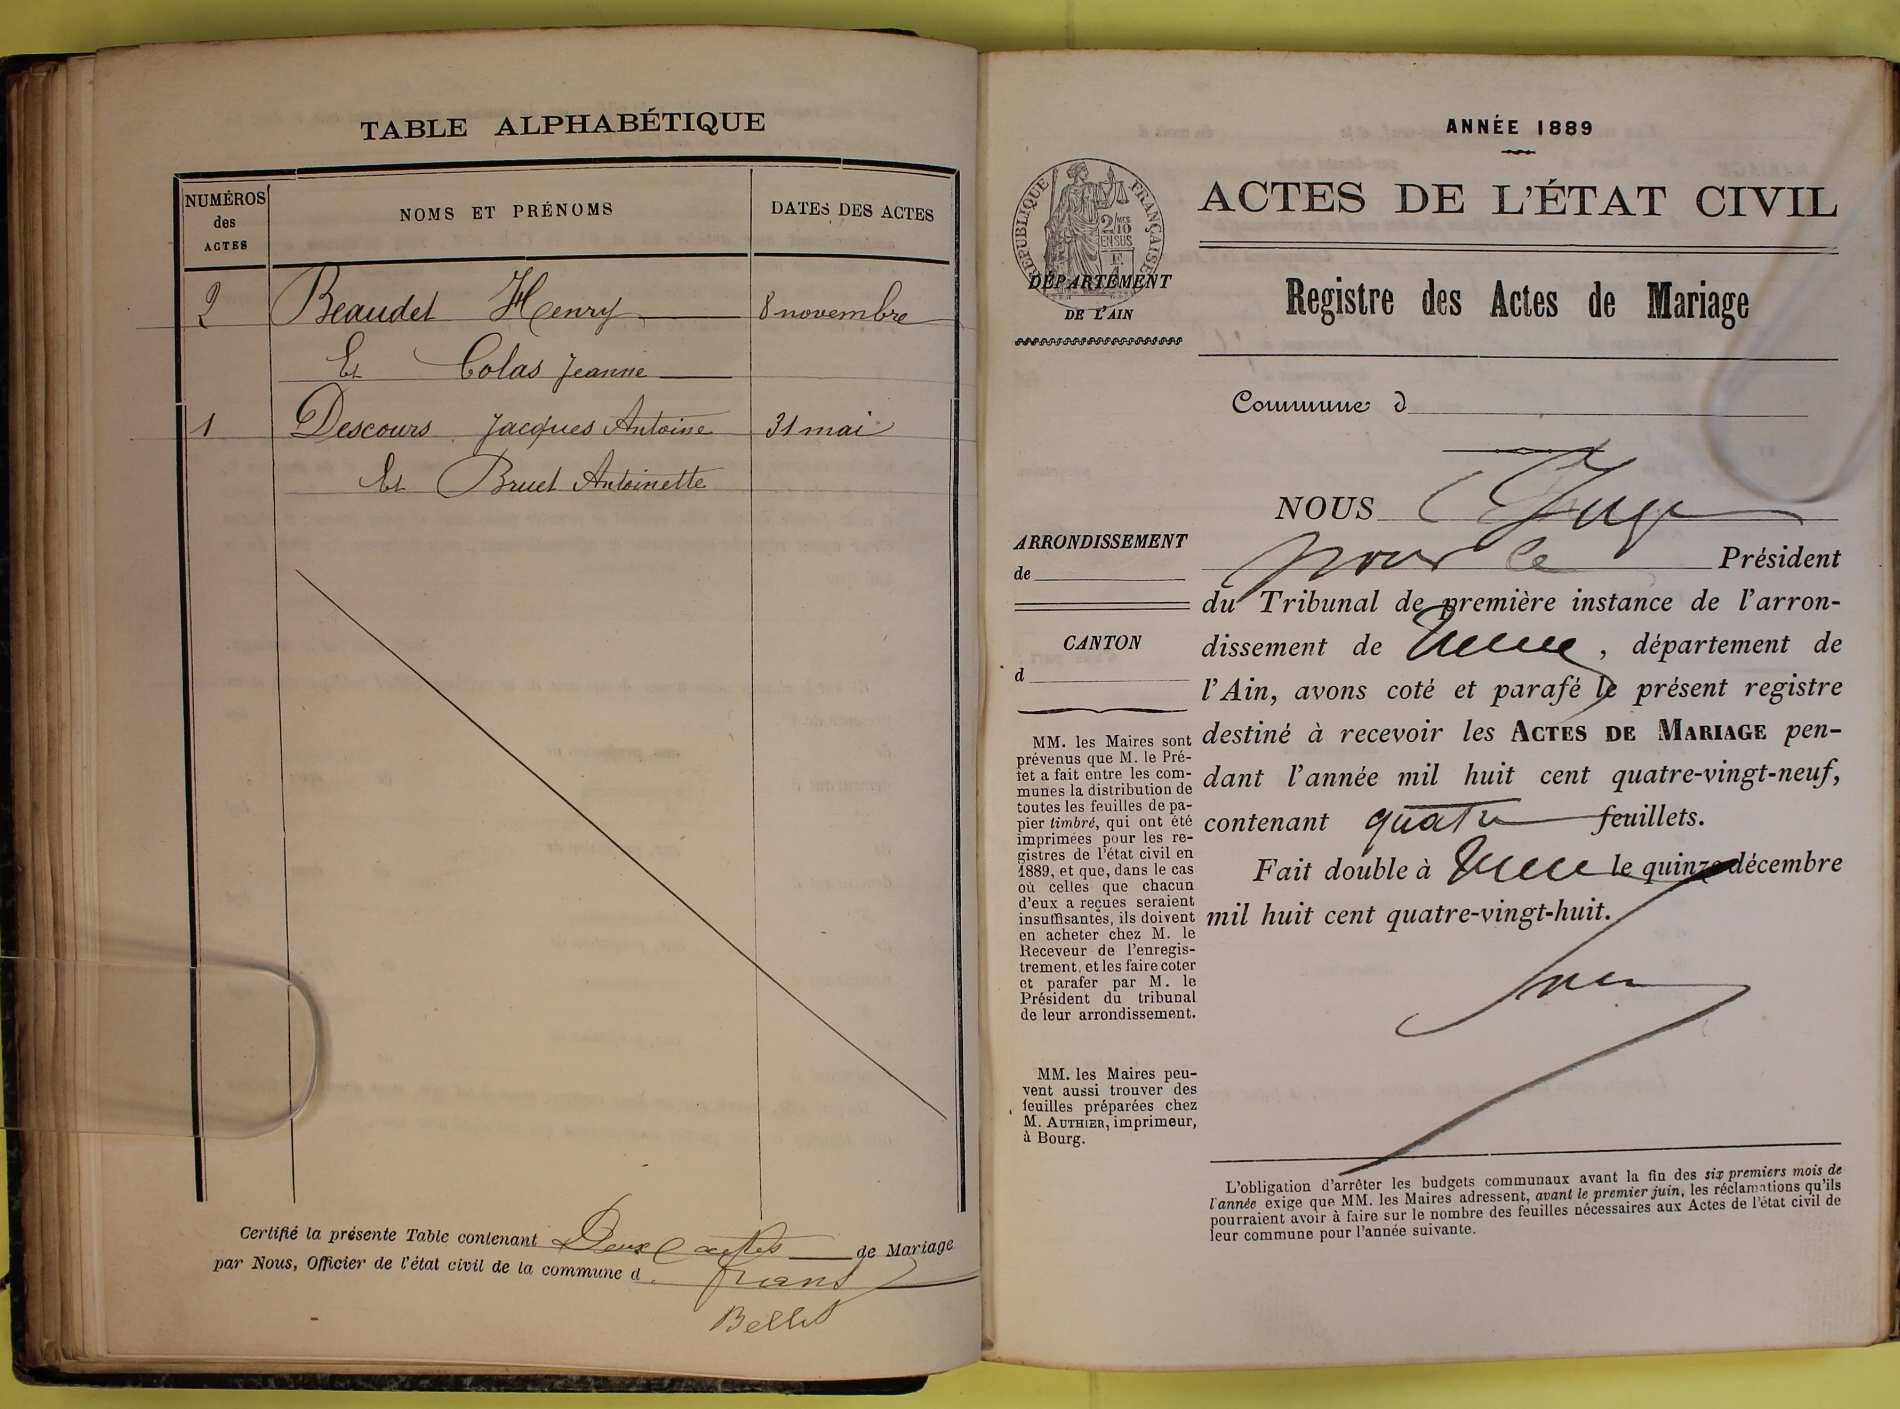 TABLE ALPHABÉTIQUE
NUMÉROS des ACTES
NOMS ET PRÉNOMS
DATES DES ACTES
2 Beaudet Henry 8 novembre
Et Colas Jeanne
1 Descours Jacques Antoine 31 mai
Et Bruet Antoinette
Certifié la présente Table contenant Deux actes de Mariage
par Nous, Officier de l'état civil de la commune d frans
Bellet
ANNÉE 1889
RÉPUBLIQUE FRANÇAISE
2/10 EN SUS
ACTES DE L'ÉTAT CIVIL
DÉPARTEMENT
DE L'AIN
Registre des Actes de Mariage
Commune d
ARRONDISSEMENT
de
CANTON
d
MM. les Maires sont
prévenus que M. le Pré-
fet a fait entre les com-
munes la distribution de
toutes les feuilles de pa-
pier timbré, qui ont été
imprimées pour les re-
gistres de l'état civil en
1889, et que, dans le cas
où celles que chacun
d'eux a reçues seraient
insuffisantes, ils doivent
en acheter chez M. le
Receveur de l'enregis-
trement, et les faire coter
et parafer par M. le
Président du tribunal
de leur arrondissement.
MM. les Maires peu-
vent aussi trouver des
feuilles préparées chez
M. AUTHIER, imprimeur,
à Bourg.
NOUS Juge
pour le Président
du Tribunal de première instance de l'arron-
dissement de , département de
l'Ain, avons coté et parafé le présent registre
destiné à recevoir les ACTES DE MARIAGE pen-
dant l'année mil huit cent quatre-vingt-neuf,
contenant quatre feuillets.
Fait double à le quinze décembre
mil huit cent quatre-vingt-huit.
L'obligation d'arrêter les budgets communaux avant la fin des six premiers mois de
l'année exige que MM. les Maires adressent, avant le premier juin, les réclamations qu'ils
pourraient avoir à faire sur le nombre des feuilles nécessaires aux Actes de l'état civil de
leur commune pour l'année suivante.